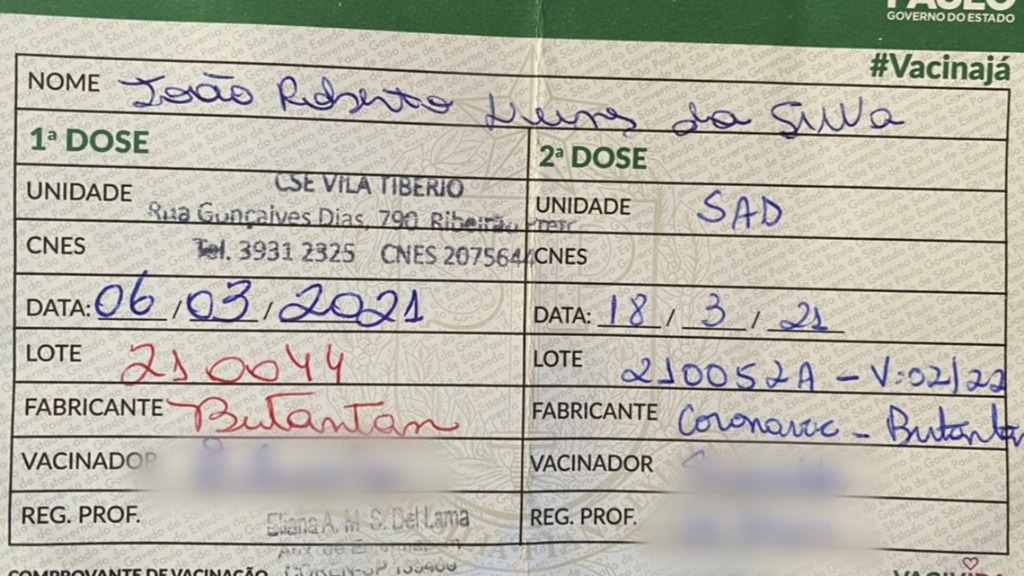 PAULO
GOVERNO DO ESTADO
#Vacinajá
NOME João Roberto Nunes da Silva
1ª DOSE
2ª DOSE
UNIDADE CSE VILA TIBERIO
Rua Gonçalves Dias, 790 Ribeirão Preto
UNIDADE SAD
CNES Tel. 3931 2325 CNES 2075644
CNES
DATA: 06/03/2021
DATA: 18/3/21
LOTE 210044
LOTE 210052A - V:02/22
FABRICANTE Butantan
FABRICANTE Coronavac - Butantan
VACINADOR
VACINADOR
REG. PROF. Eliana A. M. S. Del Lama
REG. PROF.
COMPROVANTE DE VACINAÇÃO